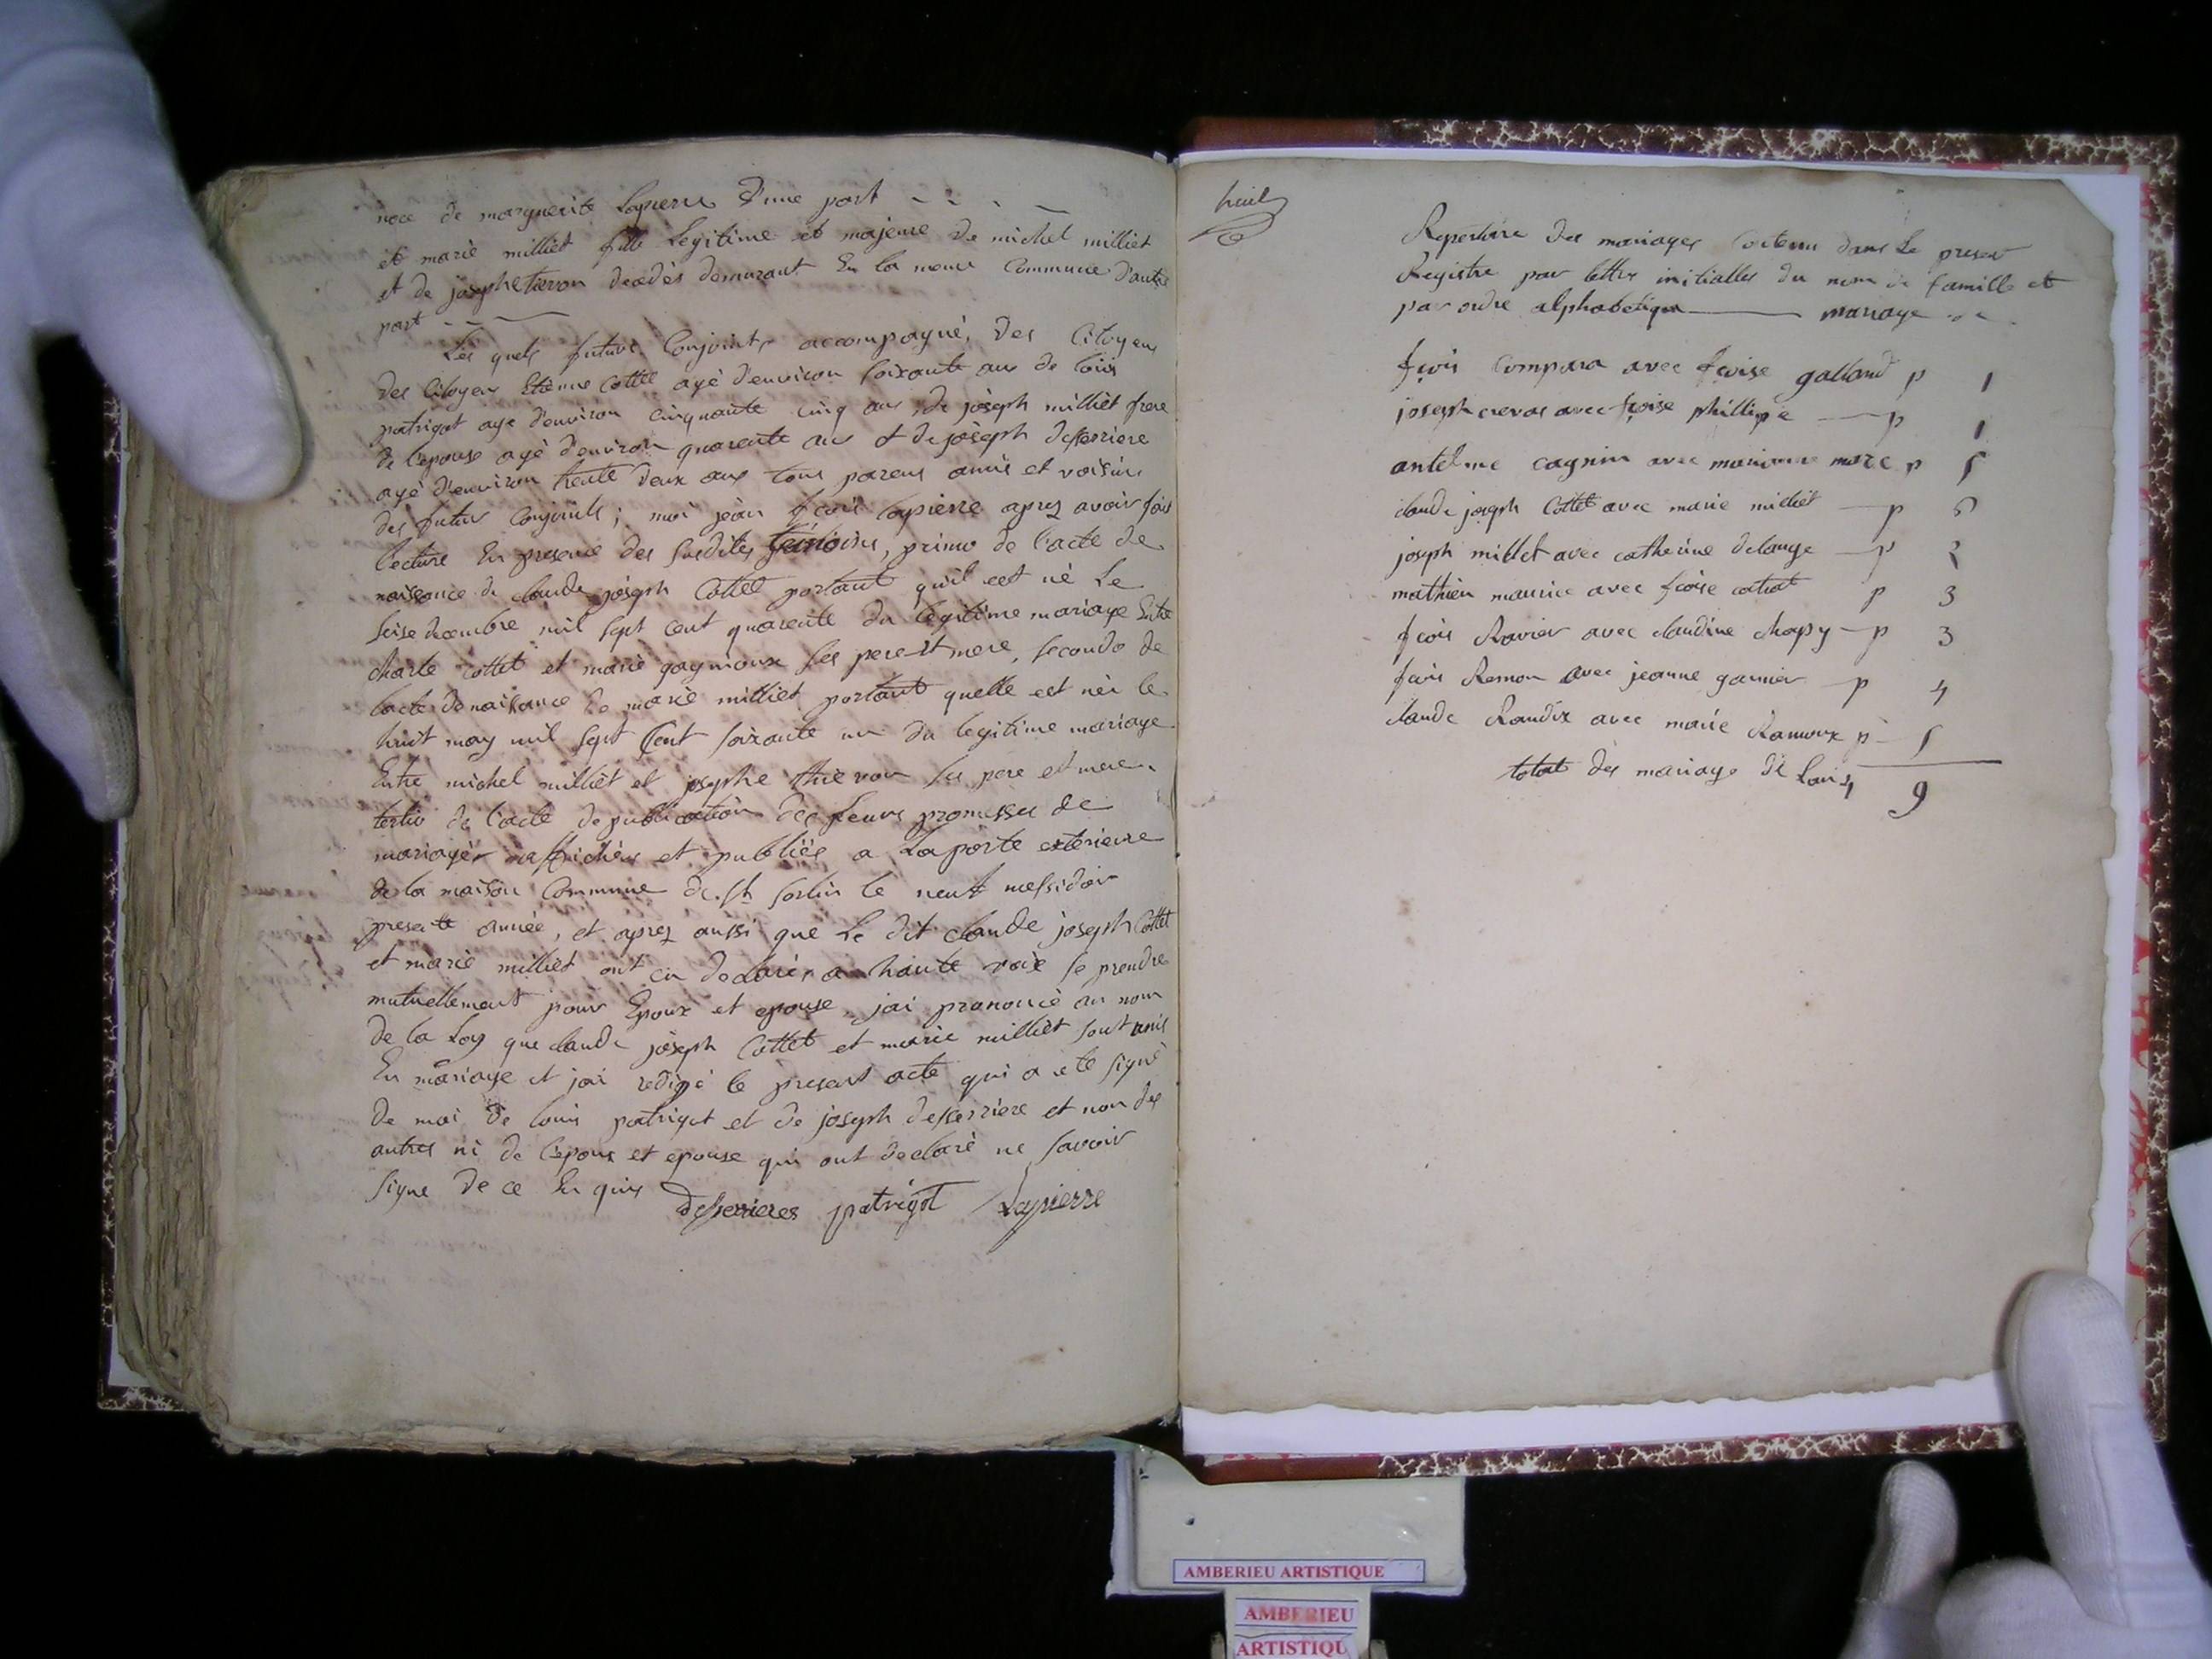 de marguerite Lapierre d'une part
et marie milliet fille Legitime et majeure de michel milliet
et de josephe tievon decedés demurant En la meme Commune d'autre
part
Les quels futurs Conjoints accompagné, des Citoyens
des Citoyens Etienne Cottet agé d'environ soixante ans de louis
patrigot agé d'environ cinquante cinq ans, de joseph milliet frere
de l'epouse agé d'environ quarente ans et de joseph desserriere
agé d'environ trente deux ans tous parens amis et voisins
des futur Conjoints; moi jean fcois lapierre aprez avoir fait
lecture En presence des susdites temoins, primo de l'acte de
naissance de claude joseph Cottet portant qu'il est né Le
seise decembre mil sept cent quarente du legitime mariage Entre
charle cottet et marie gagnioux ses pere et mere, secondo de
lacte de naissance de marie milliet portant quelle est née le
huit may mil sept Cent soixante un du legitime mariage
Entre michel milliet et josephe thievon ses pere et mere,
tertio de l'acte de publication des leurs promesses de
mariage affichées et publiée a La porte exterieure
de la maison Commune de st sorlin le neuf messidor
presente année, et aprez aussi que Le dit claude joseph Cottet
et marie milliet ont eu declarér a haute voix se prendre
mutuellement pour Epoux et epouse, jai prononcé au nom
de la Loy que claude joseph Cottet et marie milliet sont unis
En mariage et jai redigé le present acte qui a eté signé
de moi de louis patrigot et de joseph desserriere et non des
autres ni de l'epoux et epouse qui ont declaré ne savoir
signe de ce En quis
desserrieres patrigot Lapierre
huit
Repertoire des mariages Contenu dans Le present
Registre par lettres initialles du nom de famille et
par ordre alphabetique mariage
fcois Compara avec fcoise galland p 1
joseph crevas avec fcoise phillippe p 1
antelme cagnin avec marianne marc p 5
claude joseph Cottet avec marie milliet p 6
joseph millet avec catherine delange p 2
mathieu maurice avec fcoise p 3
fcois Ravier avec claudine chapy p 3
fcois Remon avec jeanne garnier p 4
claude Randix avec marie Ramoux p 5
totat des mariage de Lan 4 9
AMBERIEU ARTISTIQUE
AMBERIEU
ARTISTIQU